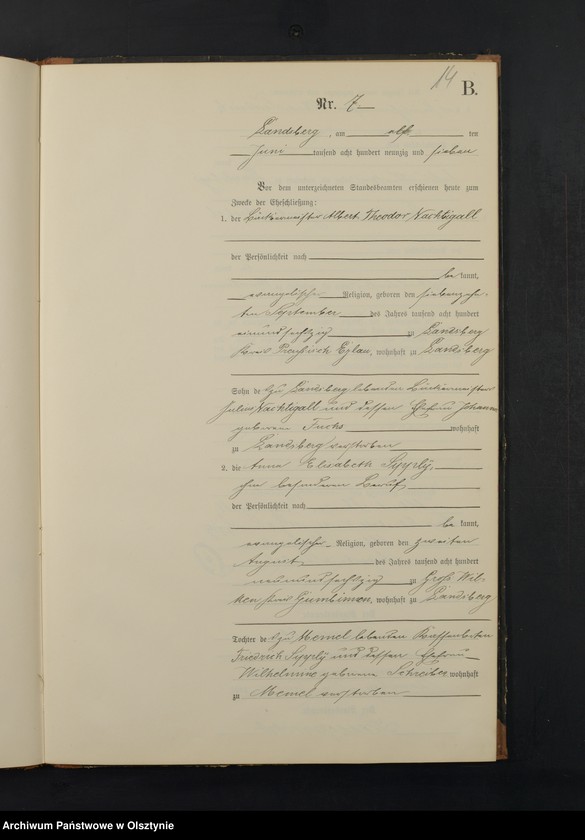 14
B.
Nr. 7
Landsberg, am elf ten
Juni tausend acht hundert neunzig und sieben
Vor dem unterzeichneten Standesbeamten erschienen heute zum
Zwecke der Eheschließung:
1. der Bäckermeister Albert Theodor Nachtigall
der Persönlichkeit nach
be kannt,
evangelischer Religion, geboren den siebenzehn-
ten September des Jahres tausend acht hundert
einundsechzig zu Landsberg
Kreis Preußisch Eylau, wohnhaft zu Landsberg
Sohn des zu Landsberg lebenden Bäckermeister
Julius Nachtigall und dessen Ehefrau Johanna
geborene Fuchs wohnhaft
zu Landsberg verstorben
2. die Anna Elisabeth Sypply,
ohne besonderen Beruf,
der Persönlichkeit nach
be kannt,
evangelischer Religion, geboren den zweiten
August des Jahres tausend acht hundert
neunundsechzig zu Groß Wil-
ken Kreis Gumbinnen, wohnhaft zu Landsberg
Tochter des zu Memel lebenden
Friedrich Sypply und dessen Ehefrau
Wilhelmine geborene Schreiber wohnhaft
zu Memel verstorben
Archiwum Państwowe w Olsztynie